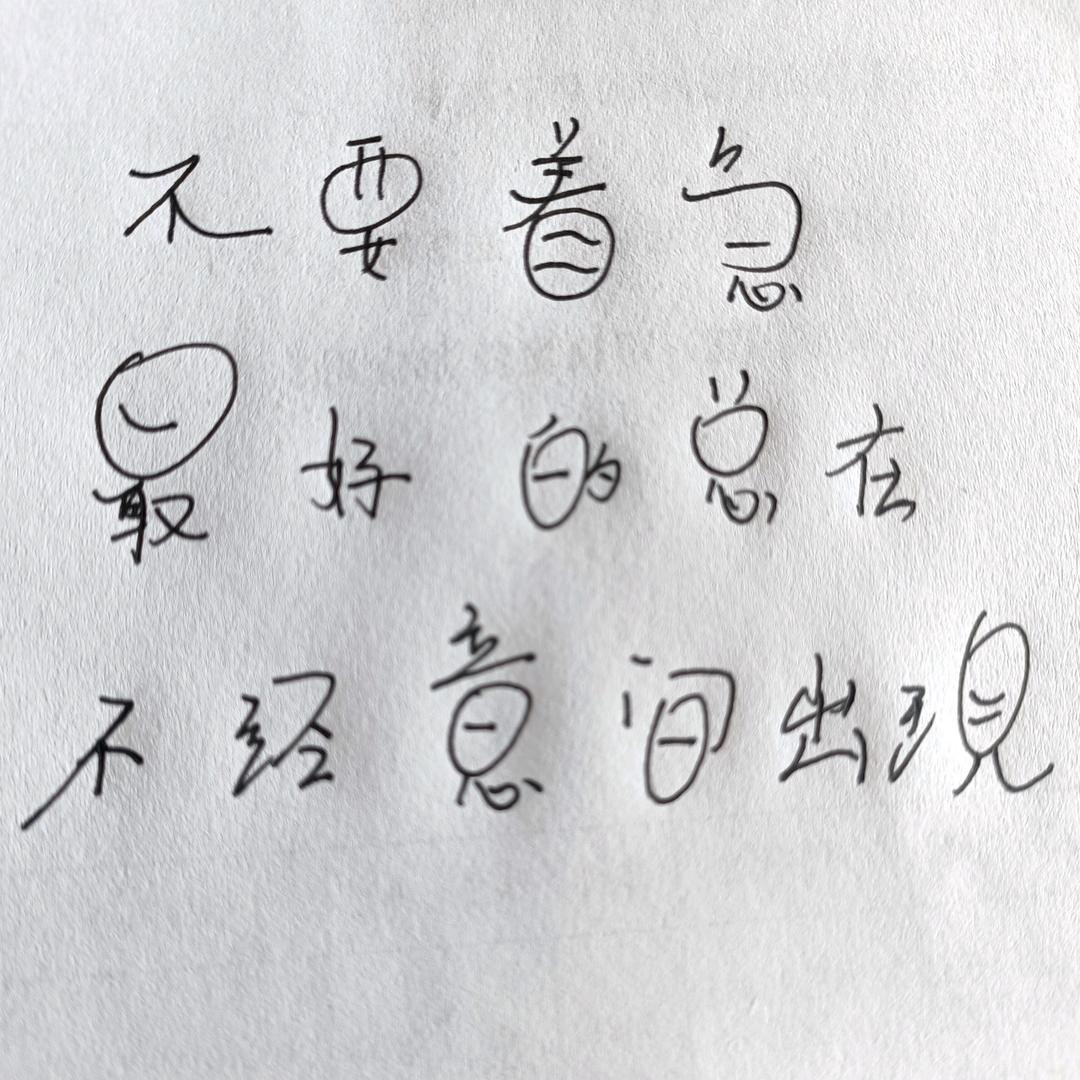 不要着急
最好的总在
不经意间出現